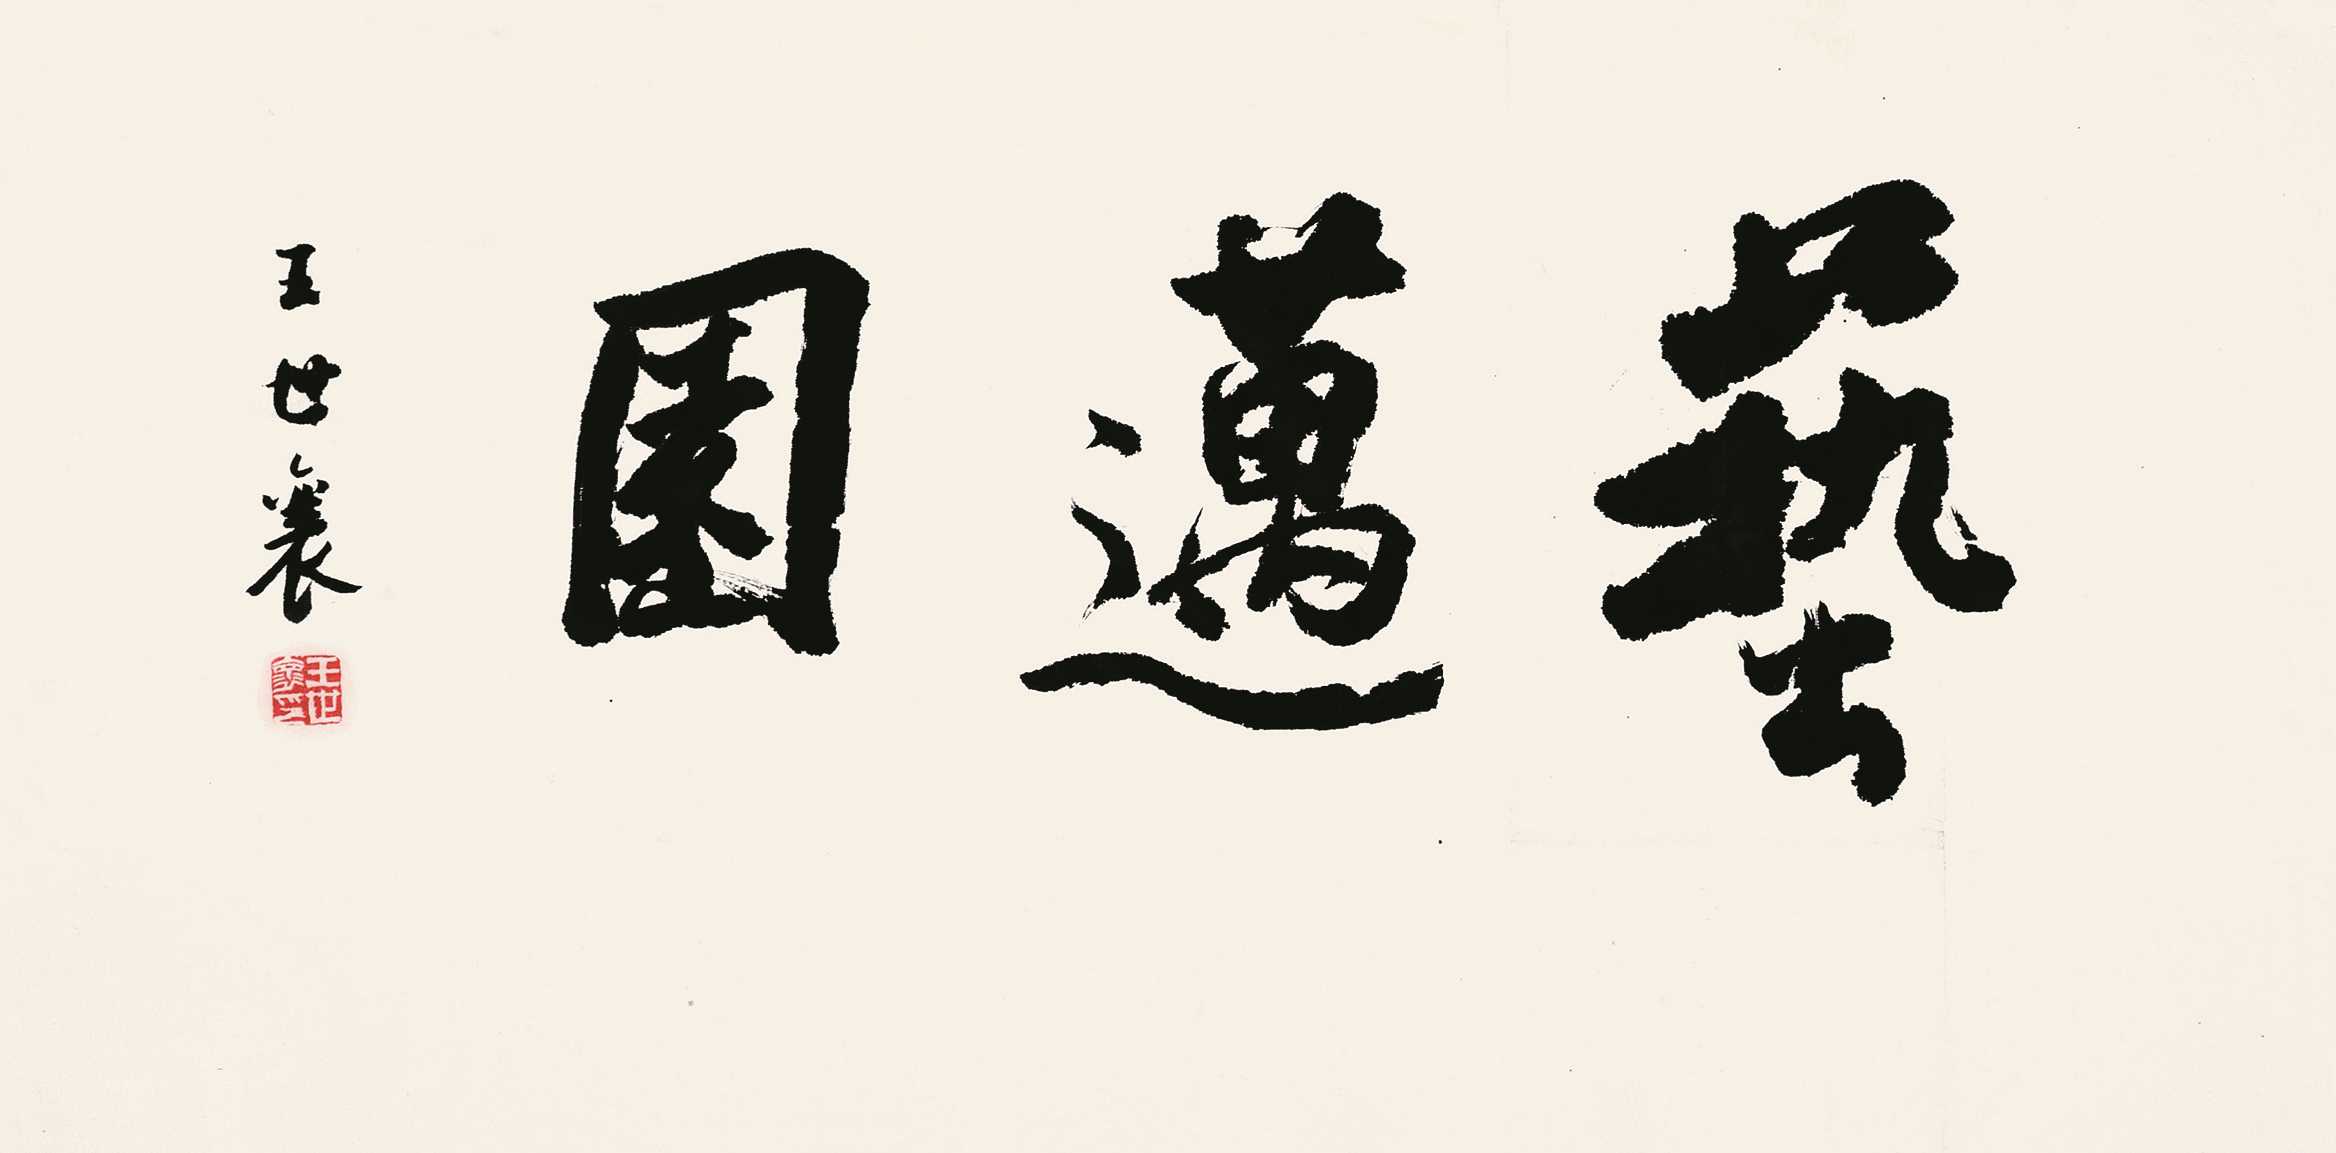 藝邁園
王世襄
王世襄印